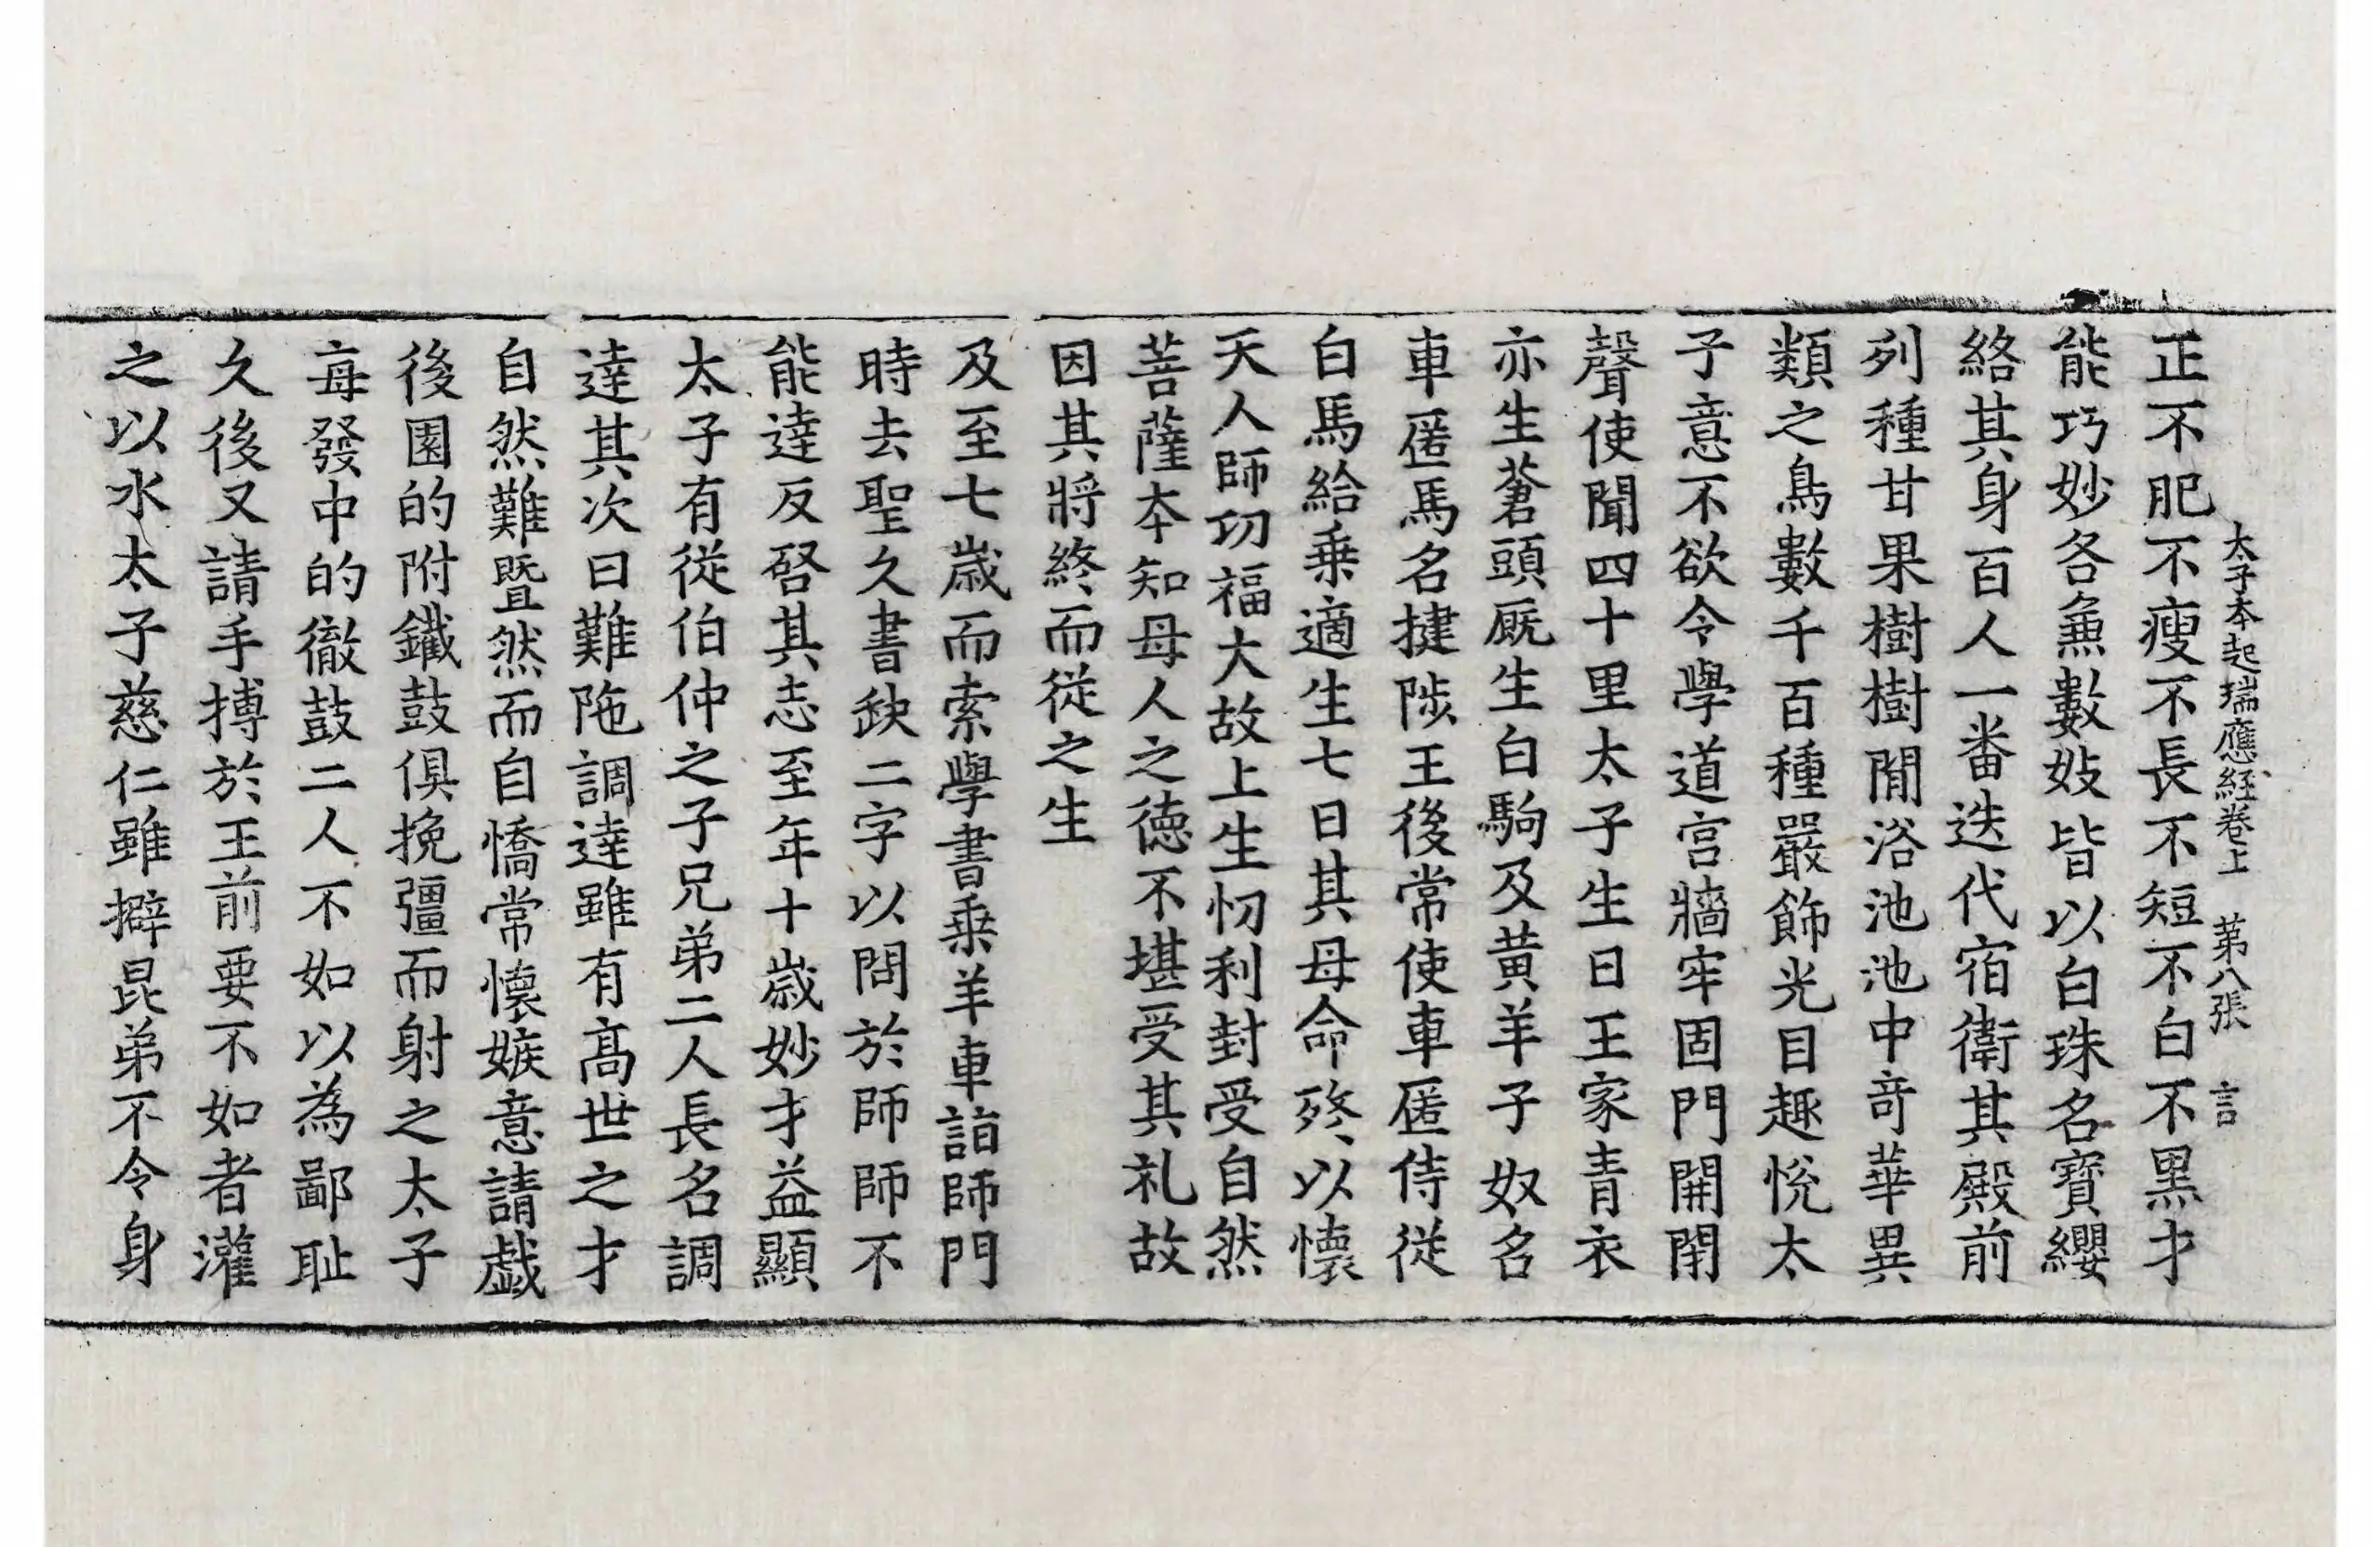 太子本起瑞應經卷上　第八張　言
正不肥不瘦不長不短不白不黑才
能巧妙各兼數妓皆以白珠名寶纓
絡其身百人一番迭代宿衛其殿前
列種甘果樹樹閒浴池池中奇華異
類之鳥數千百種嚴飾光目趣悅太
子意不欲令學道宮牆牢固門開閇
聲使聞四十里太子生日王家青衣
亦生蒼頭廐生白駒及黃羊子奴名
車匿馬名揵陟王後常使車匿侍從
白馬給乗適生七日其母命終以懷
天人師功福大故上生忉利封受自然
菩薩本知母人之德不堪受其礼故
因其將終而從之生
及至七歲而索學書乗羊車詣師門
時去聖久書缺二字以問於師師不
能達反啓其志至年十歲妙才益顯
太子有從伯仲之子兄弟二人長名調
達其次曰難陁調達雖有髙世之才
自然難暨然而自憍常懷嫉意請戱
後園的附鐵鼓俱挽彊而射之太子
每發中的徹鼓二人不如以為鄙耻
久後又請手搏於王前要不如者灌
之以水太子慈仁雖擗昆弟不令身